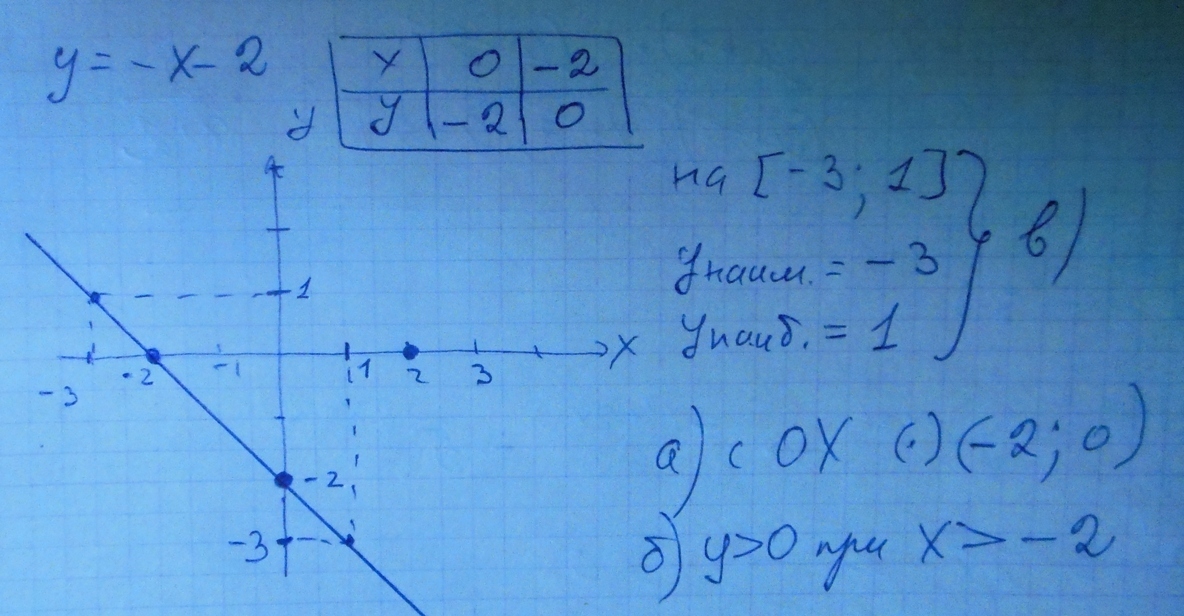 y = - x - 2
x 0 -2
y -2 0
y
на [-3; 1]
yнаим. = -3
yнаиб. = 1
в)
1
-3 -2 -1 1 2 3 x
-2
-3
а) с OX (·) (-2; 0)
б) y>0 при x > -2